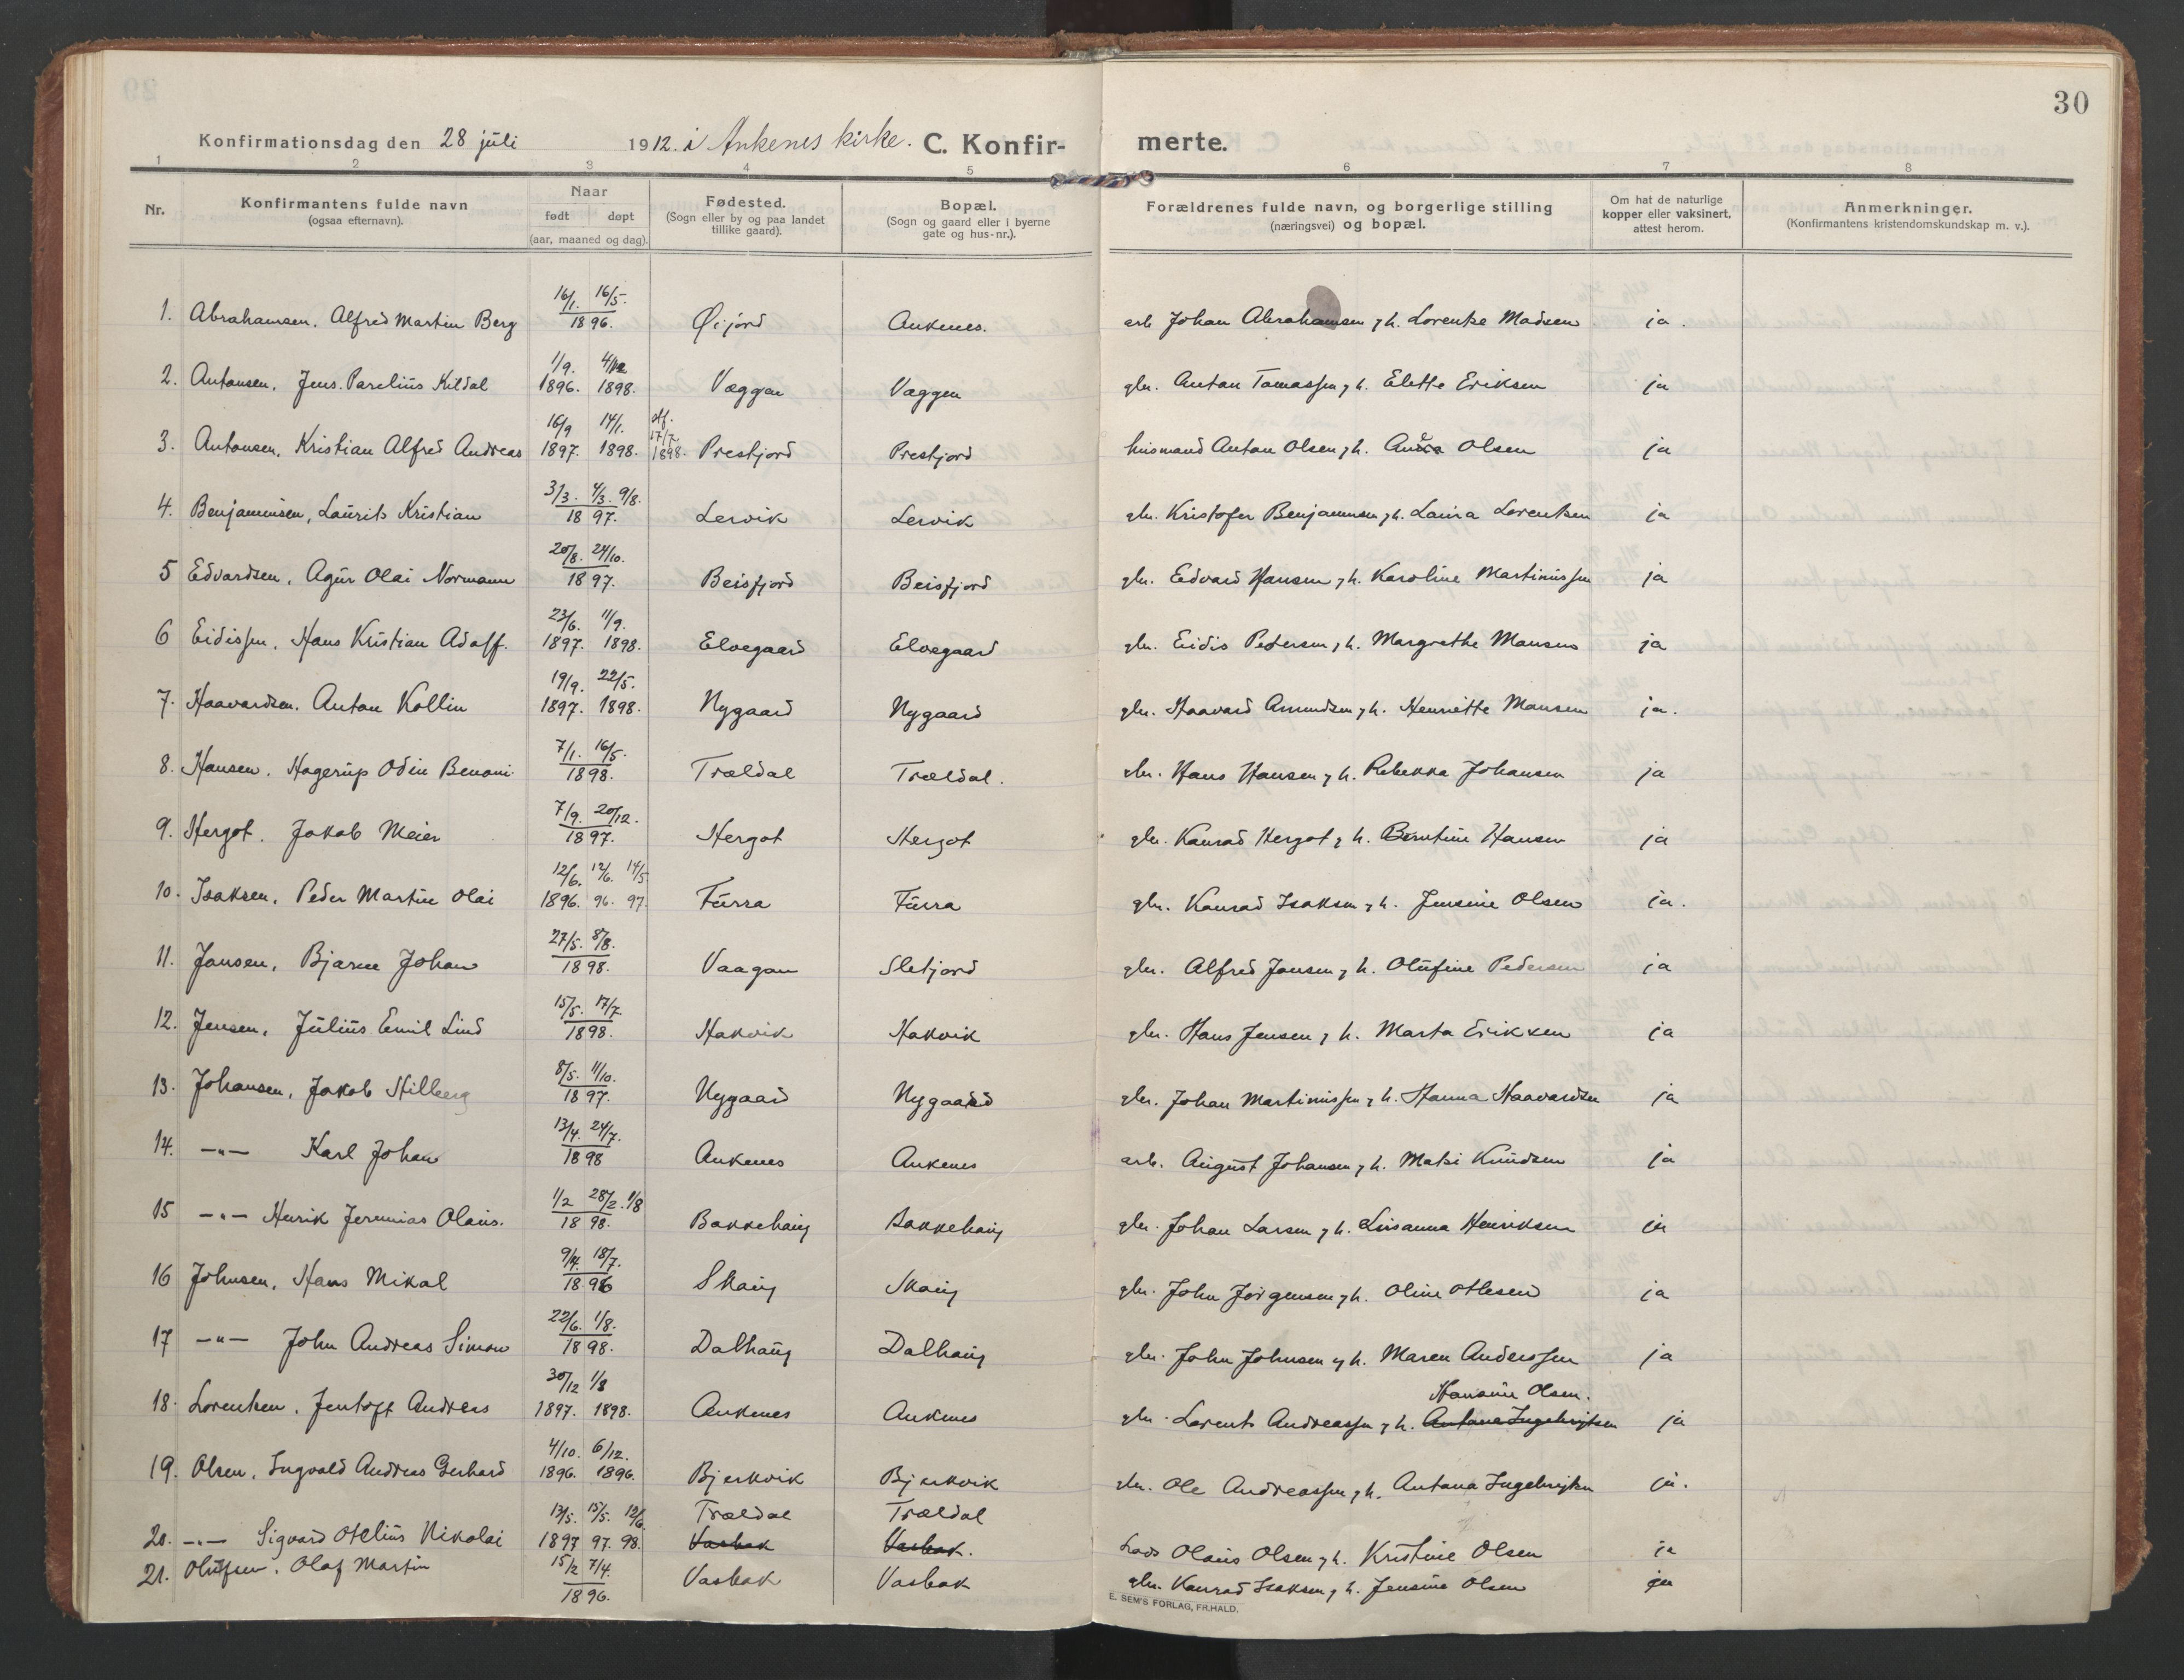 30
Konfirmationsdag den 28 juli 1912. i Ankenes kirke. C. Konfirmerte.
1 2 3 4 5 6 7 8
Nr.
Konfirmantens fulde navn
(ogsaa efternavn).
Naar
født døpt
(aar, maaned og dag).
Fødested.
(Sogn eller by og paa landet
tillike gaard).
Bopæl.
(Sogn og gaard eller i byerne
gate og hus-nr.).
Forældrenes fulde navn, og borgerlige stilling
(næringsvei) og bopæl.
Om hat de naturlige
kopper eller vaksinert,
attest herom.
Anmerkninger.
(Konfirmantens kristendomskundskap m. v.).
1. Abrahamsen. Alfred Martin Berg 16/1. 16/5. 1896. Øijord Ankenes. arb Johan Abrahamsen g h. Lorentse Madsen ja.
2. Antonsen, Jens. Parelius Kildal 1/9. 1896. 4/12 1898. Væggen Væggen gbr. Anton Tomassen g h. Elette Eriksen ja
3. Antonsen, Kristian Alfred Andreas 16/9 1897. 14/1. 1898. 17/7. 1898. Presfjord Presfjord husmand Anton Olsen g h. Anna Olsen ja
4. Benjaminsen, Laurits Kristian 3/3. 4/3. 9/8. 1897. Lervik Lervik gbr. Kristofer Benjaminsen g h. Laura Lorentsen ja
5 Edvardsen, Agur Olai Normann 20/8. 24/10. 1897. Beisfjord Beisfjord gbr. Edvard Hansen g h. Karoline Martinussen ja
6 Eidissen. Hans Kristian Adolf. 23/6. 1897. 11/9. 1898. Elvegaard Elvegaard gbr. Eidis Pedersen g h. Margrethe Monsen ja
7. Haavardsen. Anton Kollin 19/9. 1897. 22/5. 1898. Nygaard Nygaard gbr. Haavard Amundsen g h. Henriette Monsen ja.
8. Hansen. Hagerup Odin Benoni 7/1. 16/5. 1898. Trældal Trældal. gbr. Hans Hansen g h. Rebekka Johansen ja
9. Hergot. Jakob Meier 7/9. 20/12. 1897. Hergot Hergot gbr. Konrad Hergot g h. Berntine Hansen ja
10. Isaksen, Peder Martin Olai 12/6. 1896. 12/6. 96. 14/5 97. Furra Furra gbr. Konrad Isaksen g h. Jensine Olsen ja.
11. Jansen, Bjarne Johan 27/5. 8/8. 1898. Vaagan Sletjord gbr. Alfred Jansen g h. Olufine Pedersen ja
12. Jensen, Julius Emil Lind 15/5. 17/7. 1898. Hakvik Hakvik gbr. Hans Jensen g h. Marta Eriksen ja
13. Johansen, Jakob Hilberg 8/5. 11/10. 1897. Nygaard Nygaard gbr. Johan Martinussen g h. Hanna Haavardsen ja
14. —"— Karl Johan 13/4. 24/7. 1898 Ankenes Ankenes arb. August Johansen g h. Matsi Knudsen ja
15 —"— Henrik Jeremias Olaus. 1/2 28/2. 1/8 1898. Bakkehaug Bakkehaug gbr. Johan Larsen g h. Susanna Henriksen ja
16 Johnsen, Hans Mikal 9/4. 18/7. 1896 Skaug Skaug gbr. John Jørgensen g h. Oline Ottesen ja
17 —"— John Andreas Simon 22/6. 1/8. 1898. Dalhaug Dalhaug gbr. John Johnsen g h. Maren Anderssen ja
18. Lorentsen. Jentoft Andreas 30/12 1897. 1/8 1898. Ankenes Ankenes gbr. Lorents Andreassen g h. Antana Ingebrigtsen Hansine Olsen. ja
19. Olsen, Ingvald Andreas Gerhard 4/10. 1896. 6/12. 1896. Bjerkvik Bjerkvik gbr. Ole Andreassen g h. Antana Ingebrigtsen ja.
20. —"— Sigvard Otelius Nikolai 13/5. 1897 15/5. 97. 12/6. 98. Trældal Vasbak Trældal Vasbak. Lods Olaus Olsen g h. Kristine Olsen ja
21. Olufsen. Olaf Martin 15/2 7/4. 1896. Vasbak Vasbak gbr. Konrad Isaksen g h. Jensine Olsen ja
E. SEM'S FORLAG, FR.HALD.